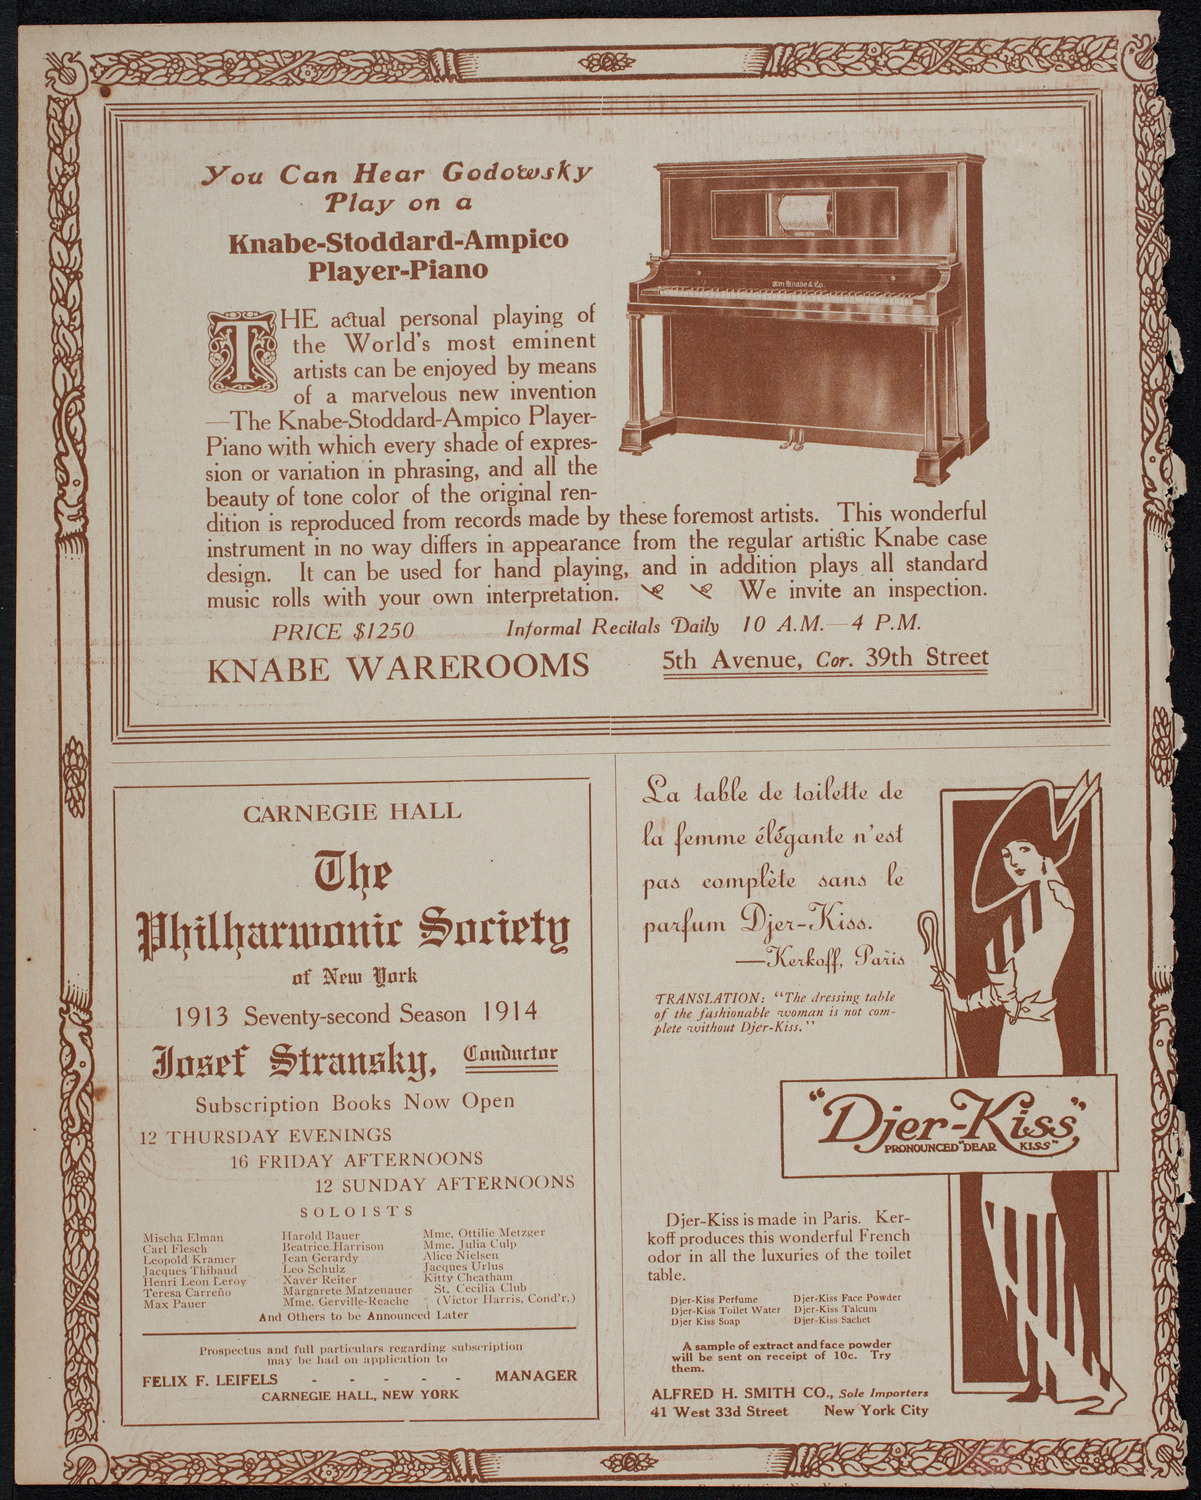 You Can Hear Godowsky
Play on a
Knabe-Stoddard-Ampico
Player-Piano
THE actual personal playing of
the World's most eminent
artists can be enjoyed by means
of a marvelous new invention
—The Knabe-Stoddard-Ampico Player-
Piano with which every shade of expres-
sion or variation in phrasing, and all the
beauty of tone color of the original ren-
dition is reproduced from records made by these foremost artists. This wonderful
instrument in no way differs in appearance from the regular artistic Knabe case
design. It can be used for hand playing, and in addition plays all standard
music rolls with your own interpretation. We invite an inspection.
PRICE $1250 Informal Recitals Daily 10 A.M.—4 P.M.
KNABE WAREROOMS 5th Avenue, Cor. 39th Street
Wm Knabe & Co.
CARNEGIE HALL
The
Philharmonic Society
of New York
1913 Seventy-second Season 1914
Josef Stransky, Conductor
Subscription Books Now Open
12 THURSDAY EVENINGS
16 FRIDAY AFTERNOONS
12 SUNDAY AFTERNOONS
SOLOISTS
Mischa Elman
Carl Flesch
Leopold Kramer
Jacques Thibaud
Henri Leon Leroy
Teresa Carreño
Max Pauer
Harold Bauer
Beatrice Harrison
Jean Gerardy
Leo Schulz
Xaver Reiter
Margarete Matzenauer
Mme. Gerville-Reache
Mme. Ottilie Metzger
Mme. Julia Culp
Alice Nielsen
Jacques Urlus
Kitty Cheatham
St. Cecilia Club
(Victor Harris, Cond'r.)
And Others to be Announced Later
Prospectus and full particulars regarding subscription
may be had on application to
FELIX F. LEIFELS - - - - - MANAGER
CARNEGIE HALL, NEW YORK
La table de toilette de
la femme élégante n'est
pas complète sans le
parfum Djer-Kiss.
—Kerkoff, Paris
TRANSLATION: "The dressing table
of the fashionable woman is not com-
plete without Djer-Kiss."
"Djer-Kiss"
PRONOUNCED "DEAR KISS"
Djer-Kiss is made in Paris. Ker-
koff produces this wonderful French
odor in all the luxuries of the toilet
table.
Djer-Kiss Perfume Djer-Kiss Face Powder
Djer-Kiss Toilet Water Djer-Kiss Talcum
Djer Kiss Soap Djer-Kiss Sachet
A sample of extract and face powder
will be sent on receipt of 10c. Try
them.
ALFRED H. SMITH CO., Sole Importers
41 West 33d Street New York City